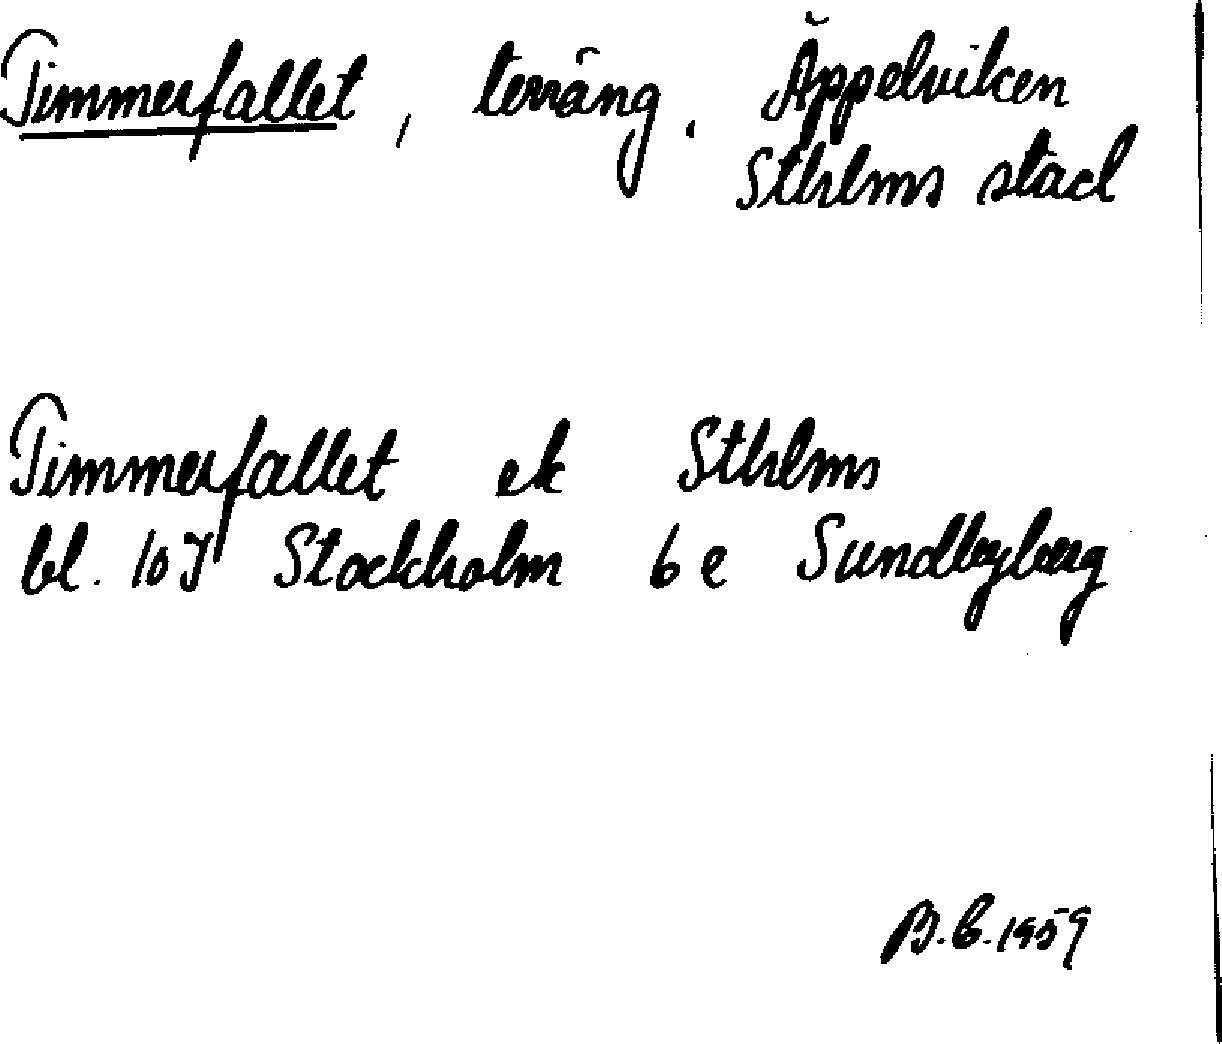 Timmerfallet, terräng. Äppelviken
Sthlms stad
Timmerfallet ek Sthlms
bl. 10 I Stockholm 6 e Sundbyberg
B.C. 1959